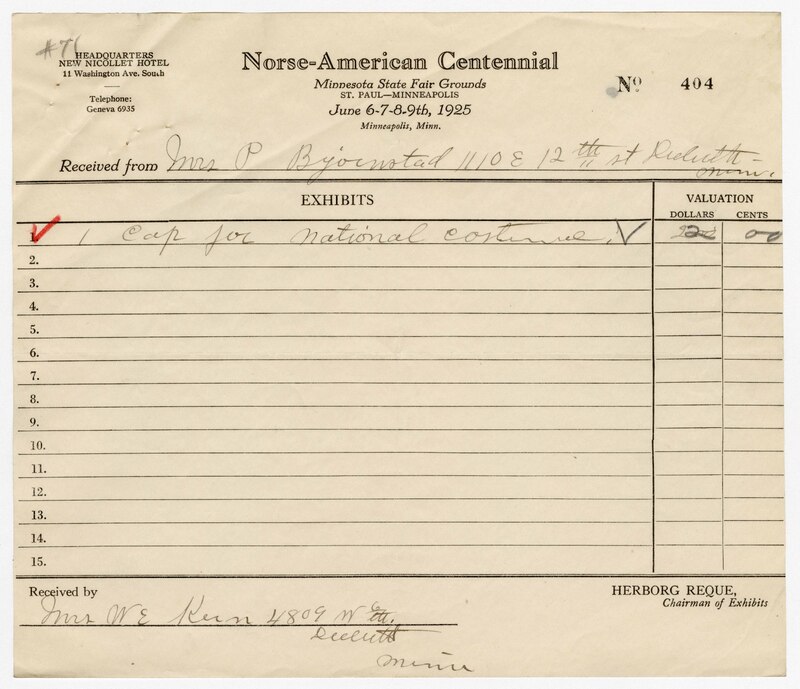 #71
HEADQUARTERS
NEW NICOLLET HOTEL
11 Washington Ave. South
Telephone:
Geneva 6935
Norse-American Centennial
Minnesota State Fair Grounds
ST. PAUL—MINNEAPOLIS
June 6-7-8-9th, 1925
Minneapolis, Minn.
No 404
Received from Mrs P Bjoenstad 1110 E 12th st Duluth-
Minn.
EXHIBITS
VALUATION
DOLLARS CENTS
1. 1 Cap for national costume. 2 00
2.
3.
4.
5.
6.
7.
8.
9.
10.
11.
12.
13.
14.
15.
Received by
Mrs W E Kern 4809 W 6th.
Duluth
Minn
HERBORG REQUE,
Chairman of Exhibits